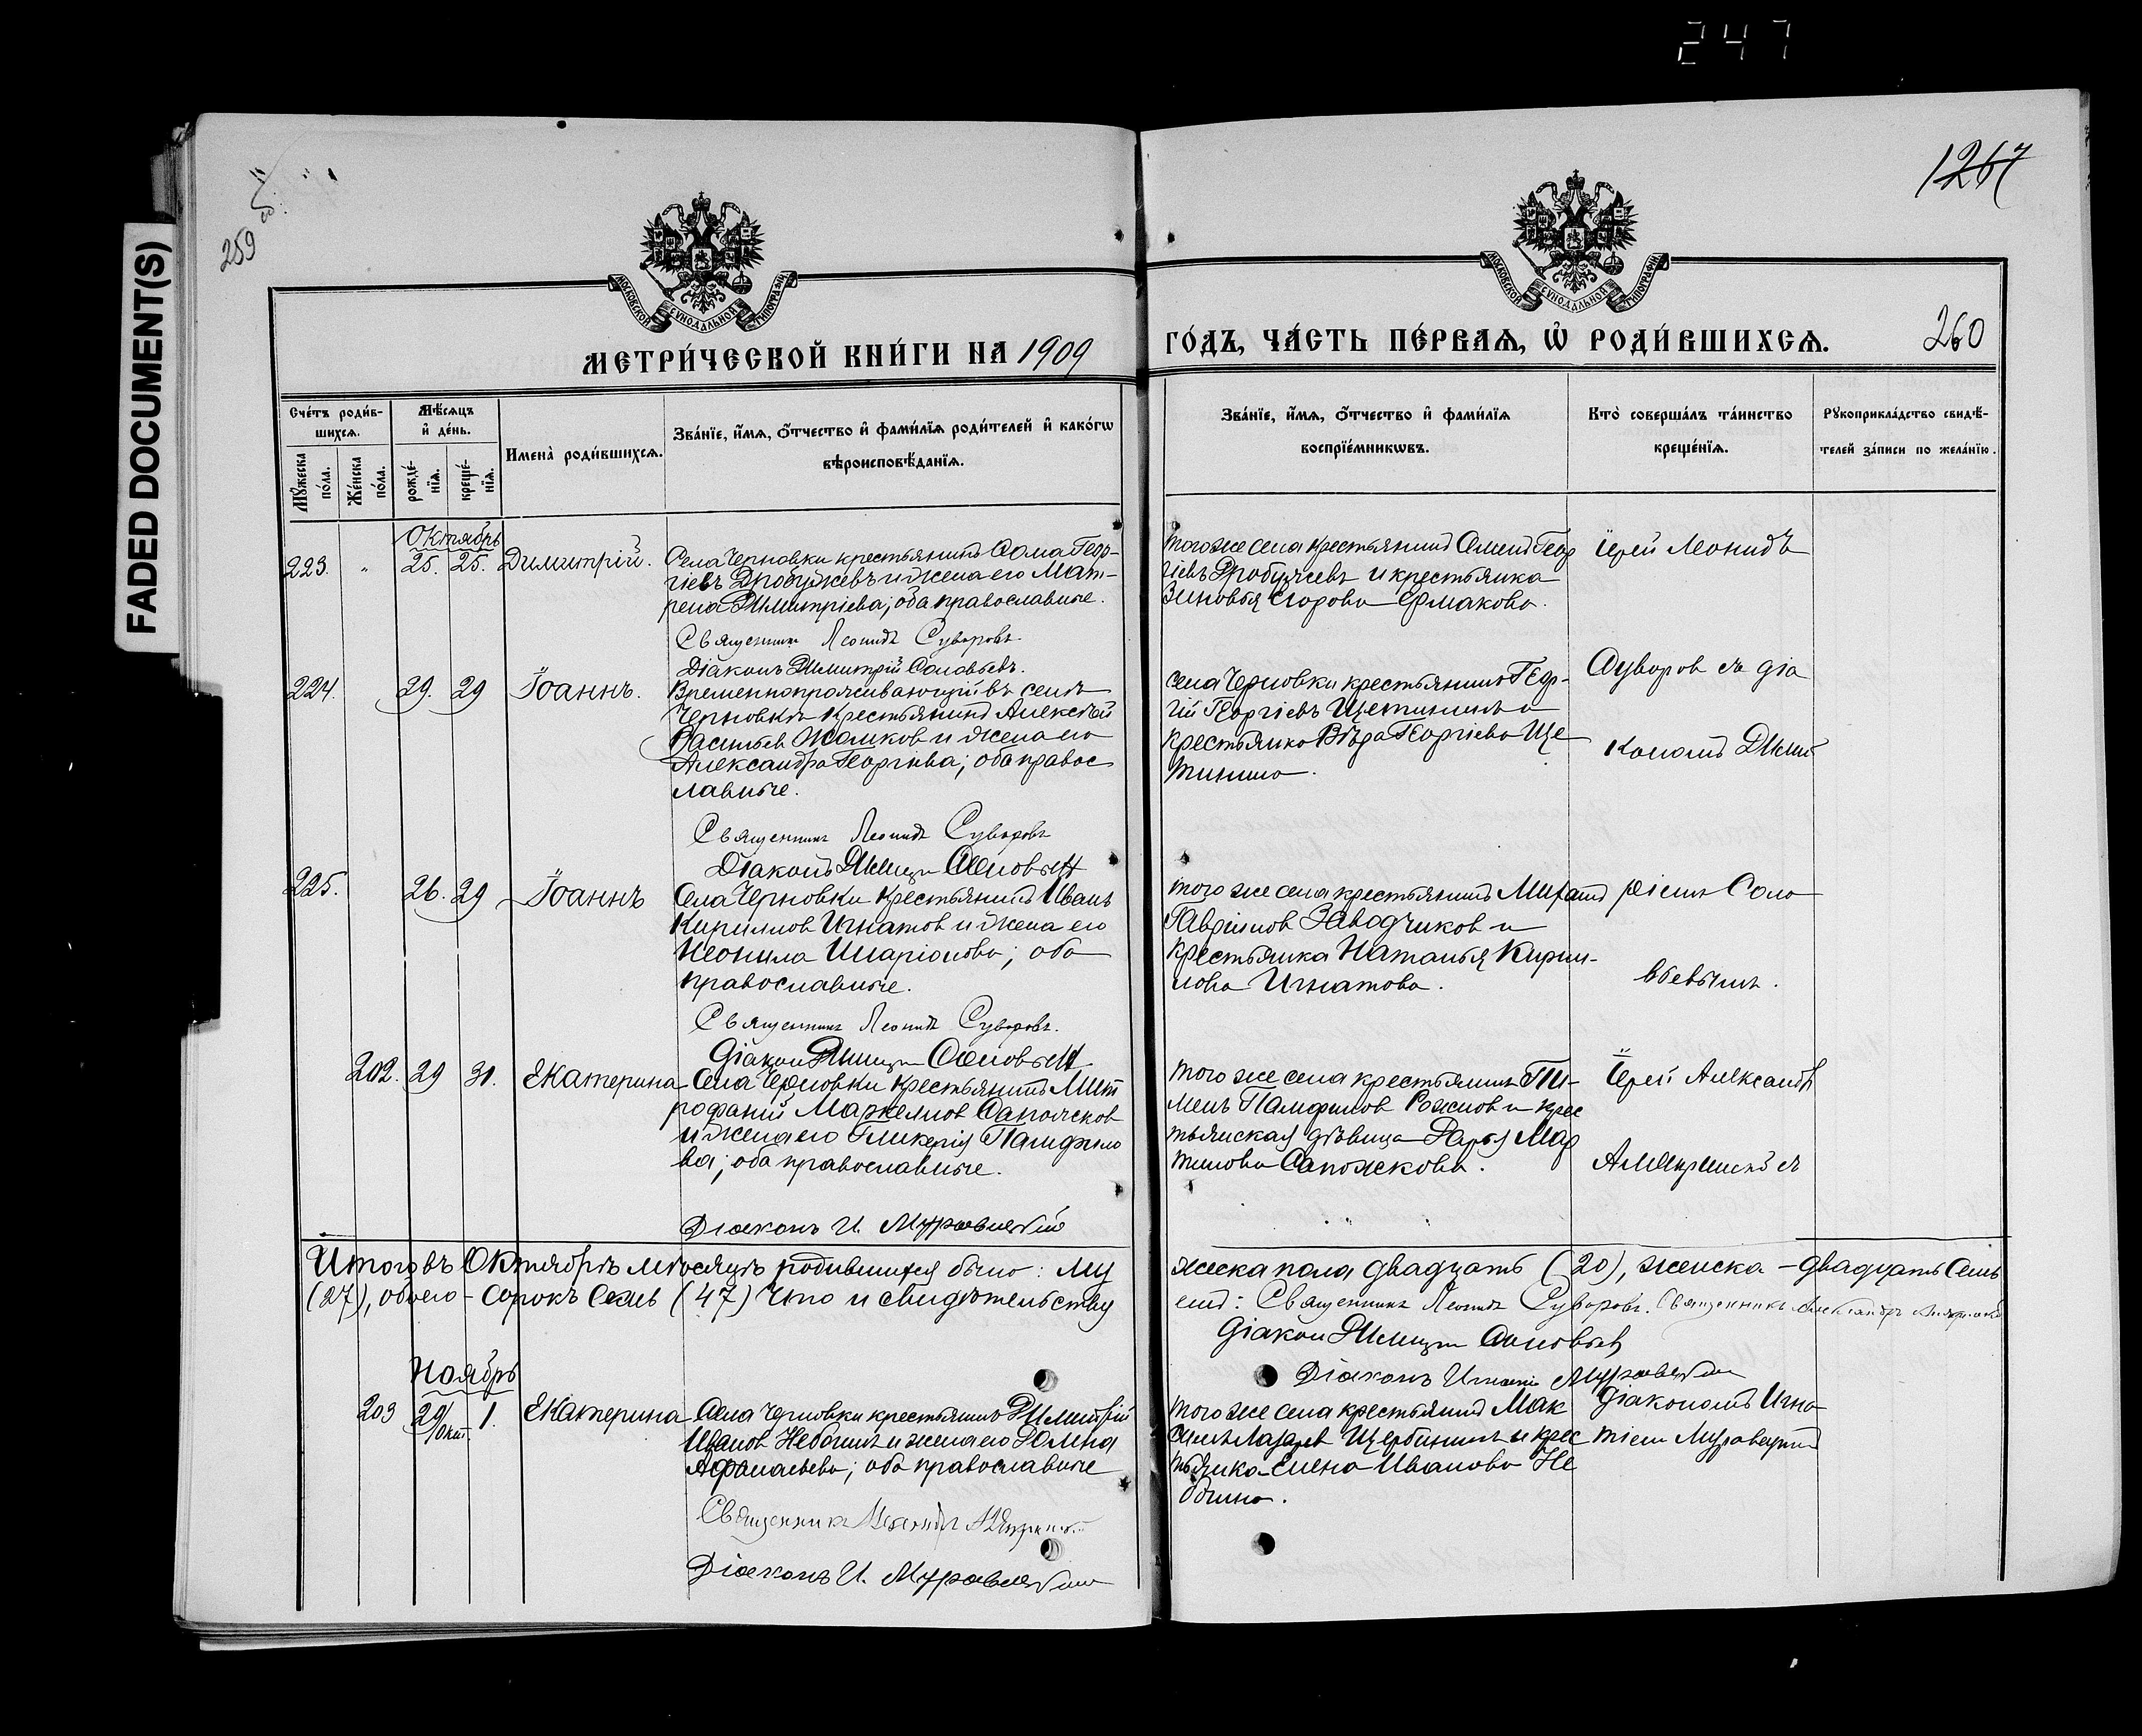 247
FADED DOCUMENT(S)
259
1267
МОСКОВСКОЙ СУНОДАЛЬНОЙ ТИПОГРАФІИ
МОСКОВСКОЙ СУНОДАЛЬНОЙ ТИПОГРАФІИ
МЕТРИ́ЧЕСКОЙ КНИ́ГИ НА 1909
ГО́ДЪ, ЧА́СТЬ ПЕ́РВАѦ, Ѡ҆ РОДИ́ВШИХСѦ.
260
Сче́тъ роди́в-
шихсѧ.
Мꙋ́жеска по́ла.
Же́нска по́ла.
Мѣ́сѧцъ
и҆ де́нь.
рожде́-
нїѧ.
креще́-
нїѧ.
Имена̀ роди́вшихсѧ.
Зва́нїе, и҆́мѧ, ѻ҆́тчество и҆ фами́лїѧ роди́телей и҆ како́гѡ
вѣроисповѣ́данїѧ.
Зва́нїе, и҆́мѧ, ѻ҆́тчество и҆ фами́лїѧ
воспрїе́мникѡвъ.
Кто̀ соверша́лъ та́инство
креще́нїѧ.
Рꙋкоприкла́дство свидѣ́-
телей за́писи по жела́нїю.
Октябрь
223. " 25. 25. Димитрій.
Села Черновки крестьянинъ Сома Геор-
гіевъ Дробужевъ и жена его Мат-
рена Димитріева; оба православные.
Священникъ Леонидъ Суворовъ.
Діаконъ Димитрій Соловьевъ.
того же села крестьянинъ Семенъ Геор
гіевъ Дробужевъ и крестьянка
Зиновья Егорова Ермакова.
Іерей Леонидъ
224. 29. 29 Іоаннъ.
Временнопроживающій въ селѣ
Черновкѣ крестьянинъ Алексѣй
Васильев Жоликов и жена его
Александра Георгіева; оба правос
лавные.
Священникъ Леонидъ Суворовъ
Діаконъ Димитрій Соловьевъ
села Черновки крестьянинъ Геор-
гій Георгіевъ Щетининъ и
крестьянка Вѣра Георгіева Ще
тинина.
Суворов съ діа
кономъ Димит
225. 26. 29 Іоаннъ
Села Черновки крестьянинъ Иванъ
Кириллов Игнатов и жена его
Неонила Иларіонова; оба
православные.
Священникъ Леонидъ Суворовъ.
Діакон Димитрій Соловьевъ
того же села крестьянинъ
Гавриилов Заводчиков и
крестьянка Наталья Кирил-
лова Игнатова.
ріемъ Соло
вьевымъ.
202. 29 31. Екатерина
Села Черновки крестьянинъ Мит
рофаній Маркелов Сапожков
и жена его Гликерія Памфило
ва; оба православные.
Діаконъ И. Муравлевскій
того же села крестьянинъ Пи-
менъ Памфилов Рожнов и крес
тьянская дѣвица Дарья Мар
тинова Сапожкова.
Іерей Александръ
съ
Итого въ Октябрѣ мѣсяцѣ родившихся было: му
жеска пола двадцать (20), женска – двадцать семь
(27), обоего – сорокъ семь (47) Что и свидѣтельству
емъ: Священникъ Леонидъ Суворовъ. Священникъ Александръ
Діакон Димитрій Соловьевъ
Діаконъ Игнатій Муравлевскій
Ноябрь
203 29/окт. 1. Екатерина
Села Черновки крестьянинъ Димитрій
Иванов Небогинъ и жена его Домна
Афанасьева; оба православные
Священникъ Александръ
Діаконъ И. Муравлевскій
того же села крестьянинъ Мак
симъ Лазарев Щербининъ и крес
тьянка Елена Иванова Не
богина.
Діакономъ Игна
тіемъ